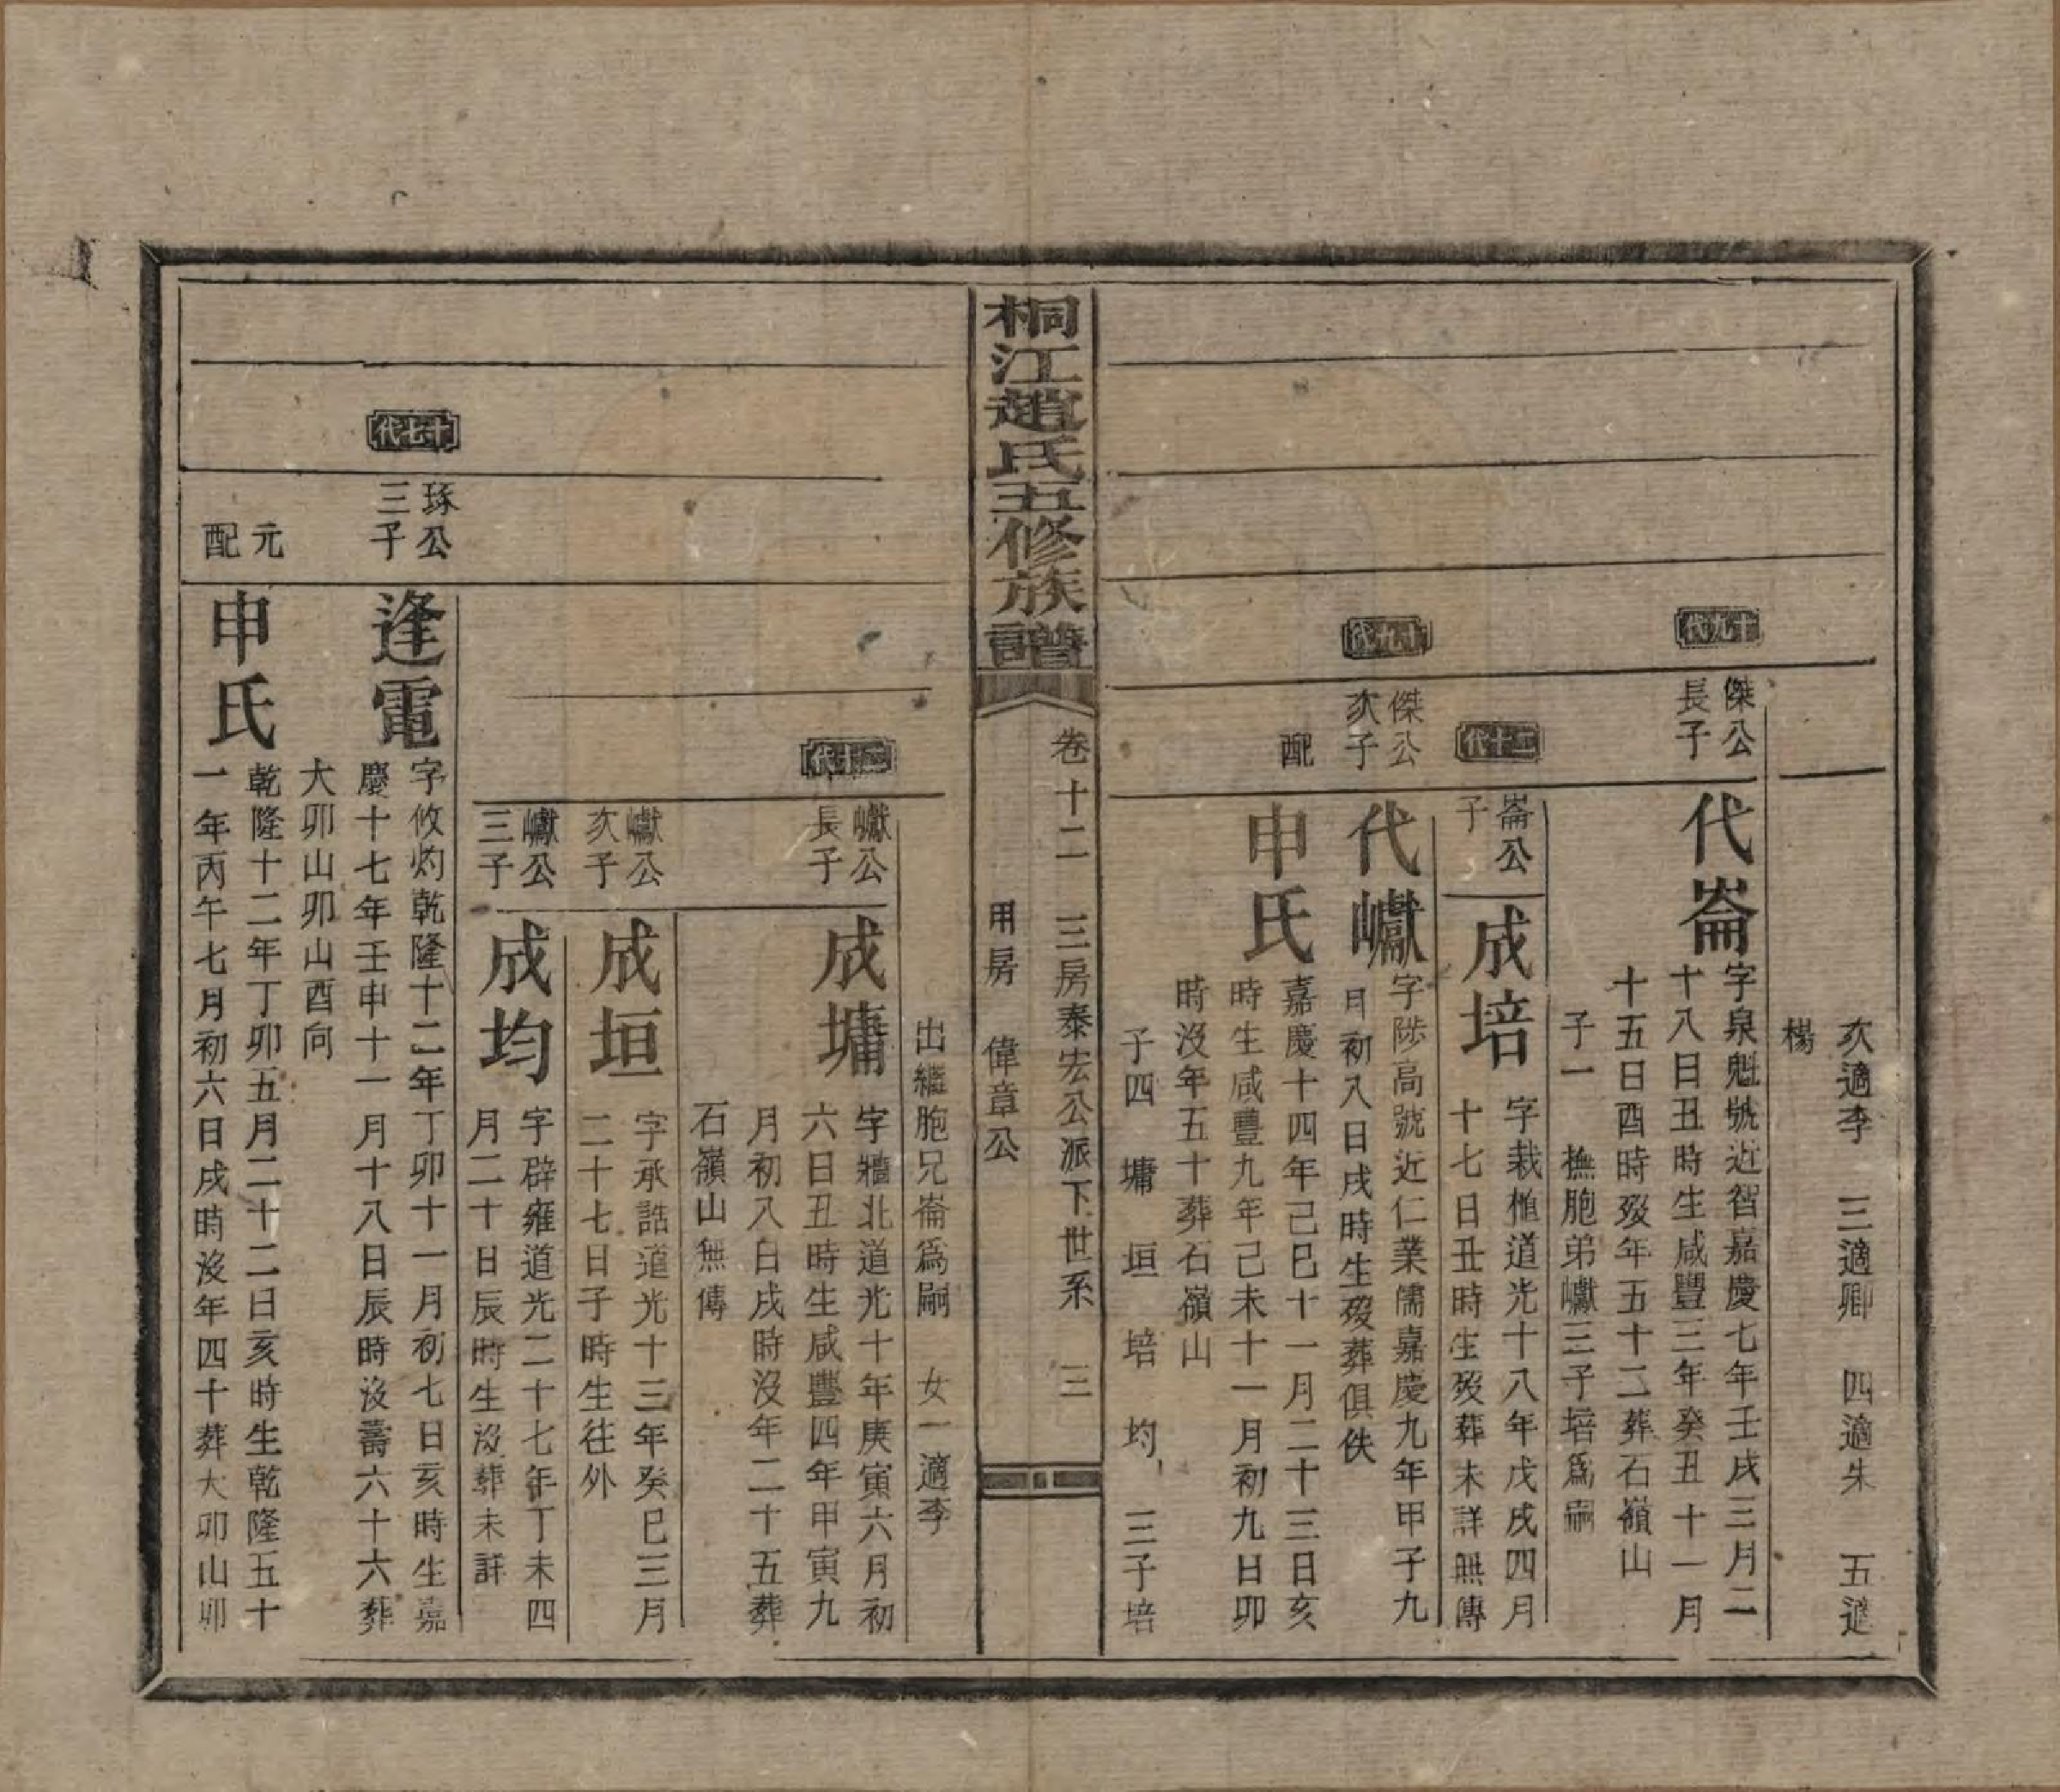 次適李　三適卿　四適朱　五適
楊
十九代
傑公
長子
代崙
字泉魁號近智嘉慶七年壬戌三月二
十八日丑時生咸豐三年癸丑十一月
十五日酉時歿年五十二葬石嶺山
子一　撫胞弟巘三子培爲嗣
二十代
崙公
子
成培
字栽樶道光十八年戊戌四月
十七日丑時生歿葬未詳無傳
十九代
傑公
次子
代巘
字陟高號近仁業儒嘉慶九年甲子九
月初八日戌時生歿葬俱佚
配
申氏
嘉慶十四年己巳十一月二十三日亥
時生咸豐九年己未十一月初九日卯
時沒年五十葬石嶺山
子四　墉　垣　培　均　三子培
桐江趙氏五修族譜
卷十二　三房泰宏公派下世系　三
用房　偉章公
出繼胞兄崙爲嗣　女一適李
二十代
巘公
長子
成墉
字牆北道光十年庚寅六月初
六日丑時生咸豐四年甲寅九
月初八日戌時沒年二十五葬
石嶺山無傳
巘公
次子
成垣
字承誥道光十三年癸巳三月
二十七日子時生往外
巘公
三子
成均
字辟雍道光二十七年丁未四
月二十日辰時生沒葬未詳
十七代
琢公
三子
逢電
字攸灼乾隆十二年丁卯十一月初七日亥時生嘉
慶十七年壬申十一月十八日辰時沒壽六十六葬
大卯山卯山酉向
元
配
申氏
乾隆十二年丁卯五月二十二日亥時生乾隆五十
一年丙午七月初六日戌時沒年四十葬大卯山卯